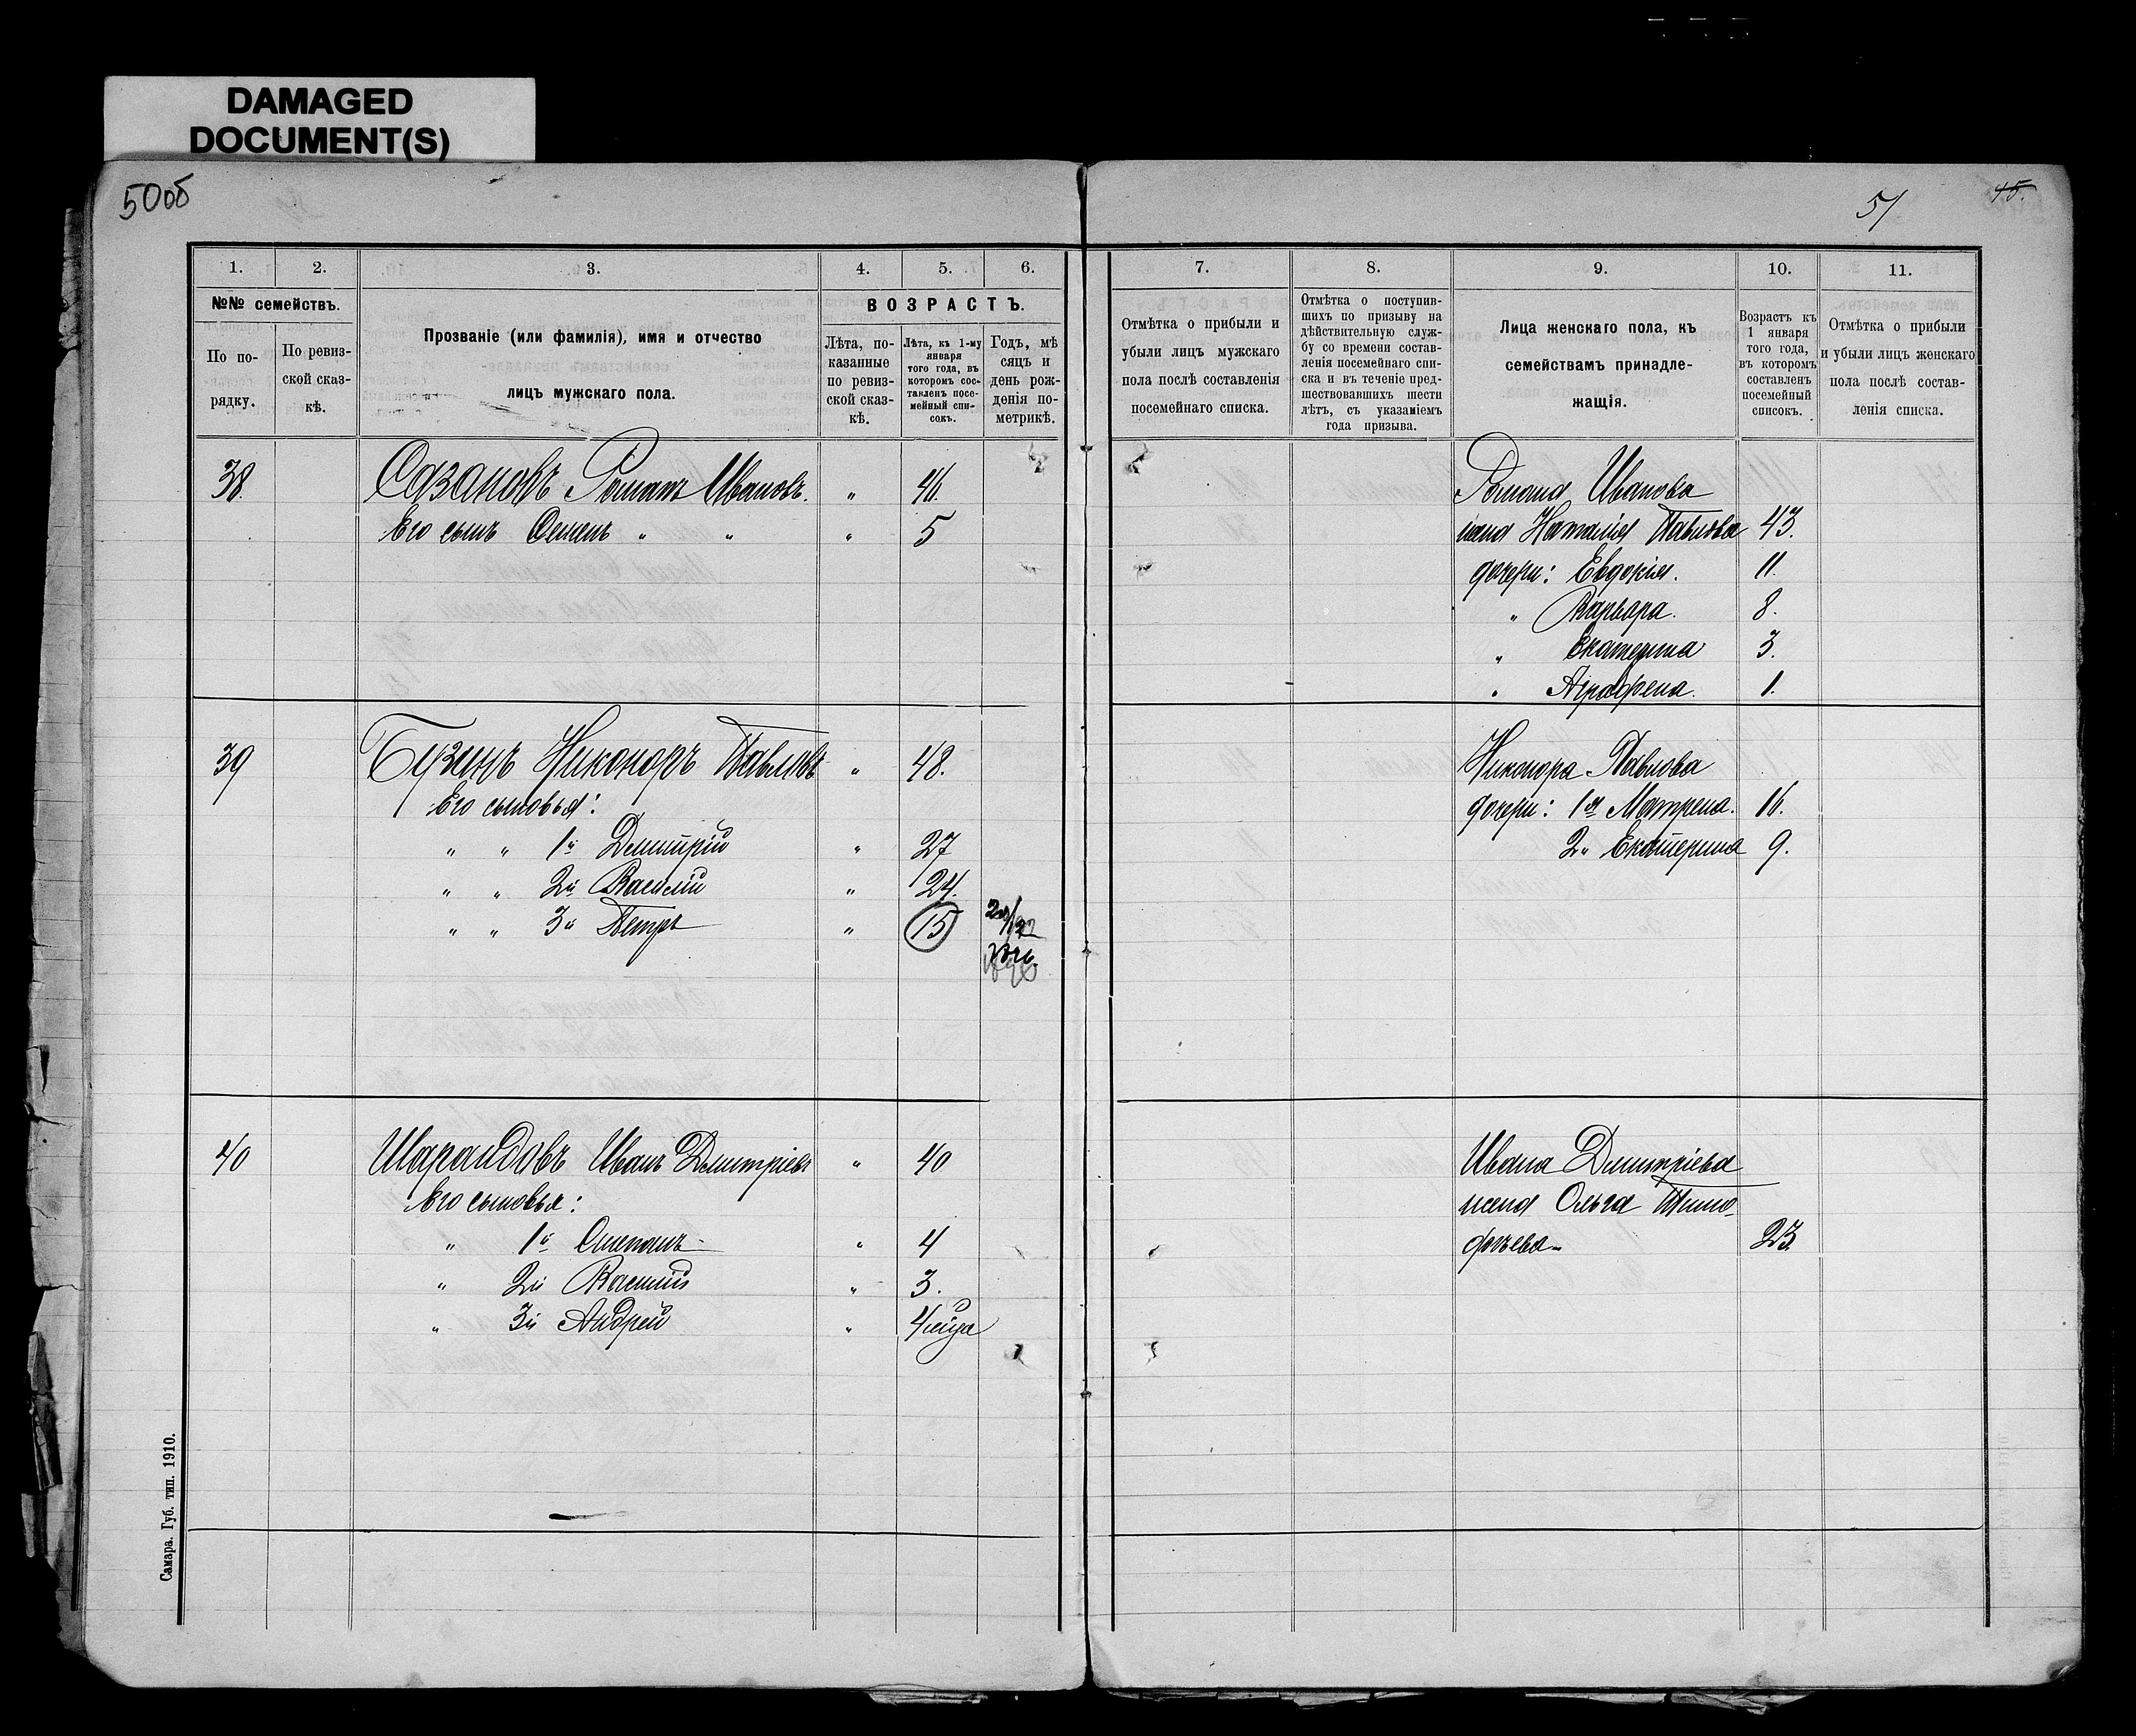 DAMAGED
DOCUMENT(S)
50об
51
45.
1.
2.
3.
4.
5.
6.
№№ семействъ.
По по-
рядку.
По ревиз-
ской сказ-
кѣ.
Прозваніе (или фамилія), имя и отчество
лицъ мужскаго пола.
ВОЗРАСТЪ.
Лѣта, по-
казанные
по ревиз-
ской сказ-
кѣ.
Лѣта, къ 1-му
января
того года, въ
которомъ сос-
тавленъ посе-
мейный спи-
сокъ.
Годъ, мѣ
сяцъ и
день рож-
денія по-
метрикѣ.
38. Сазановъ Романъ Ивановъ. " 46.
Его сынъ Семенъ " " " 5
39 Бузинъ Никоноръ Павловъ " 48.
Его сыновья:
" " 1й Дмитрій " 27
" " 2й Василій " 24.
" " 3й Петръ " 15
40 Шарандовъ Иванъ Дмитріевъ " 40
Его сыновья:
" 1й Степанъ " 4
" 2й Василій " 3.
" 3й Андрей " 4 мѣца
Самара. Губ. тип. 1910.
7.
8.
9.
10.
11.
Отмѣтка о прибыли и
убыли лицъ мужскаго
пола послѣ составленія
посемейнаго списка.
Отмѣтка о поступив-
шихъ по призыву на
дѣйствительную служ-
бу со времени состав-
ленія посемейнаго спи-
ска и въ теченіе пред-
шествовавшихъ шести
лѣтъ, съ указаніемъ
года призыва.
Лица женскаго пола, къ
семействамъ принадле-
жащія.
Возрастъ къ
1 января
того года,
въ которомъ
составленъ
посемейный
списокъ.
Отмѣтка о прибыли
и убыли лицъ женскаго
пола послѣ состав-
ленія списка.
Романа Иванова
жена Наталія Павлова 43.
дочери: Евдокія. 11.
" Варвара. 8.
" Екатерина 3.
" Аграфена. 1.
Никонора Павлова
дочери: 1я Матрена. 16.
2я Екатерина 9.
Ивана Дмитріева
жена Ольга Тимо-
фѣева 23.